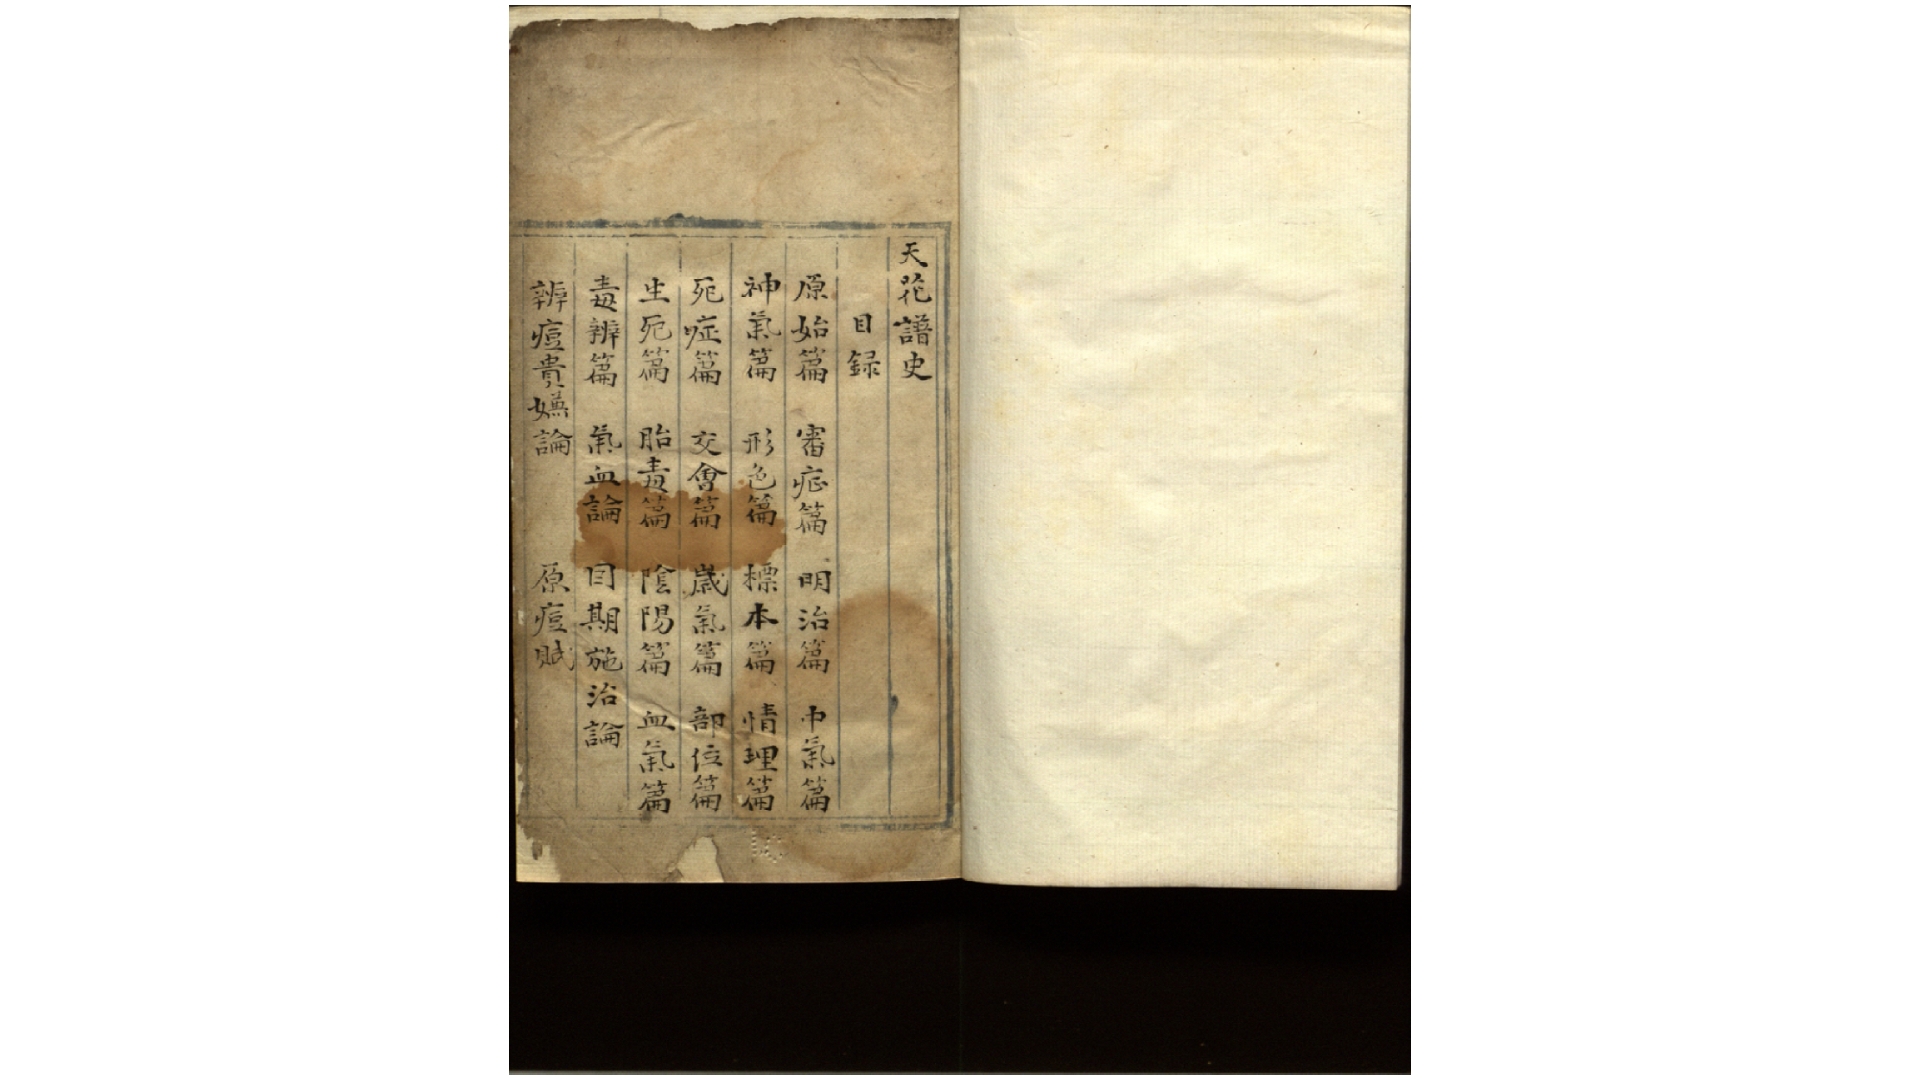 天花譜史
目録
原始篇 審症篇 明治篇 中氣篇
神氣篇 形色篇 標本篇 情理篇
死症篇 交會篇 歲氣篇 部位篇
生死篇 胎毒篇 陰陽篇 血氣篇
毒辨篇 氣血論 日期施治論
辨痘貴嫌論 原痘賦